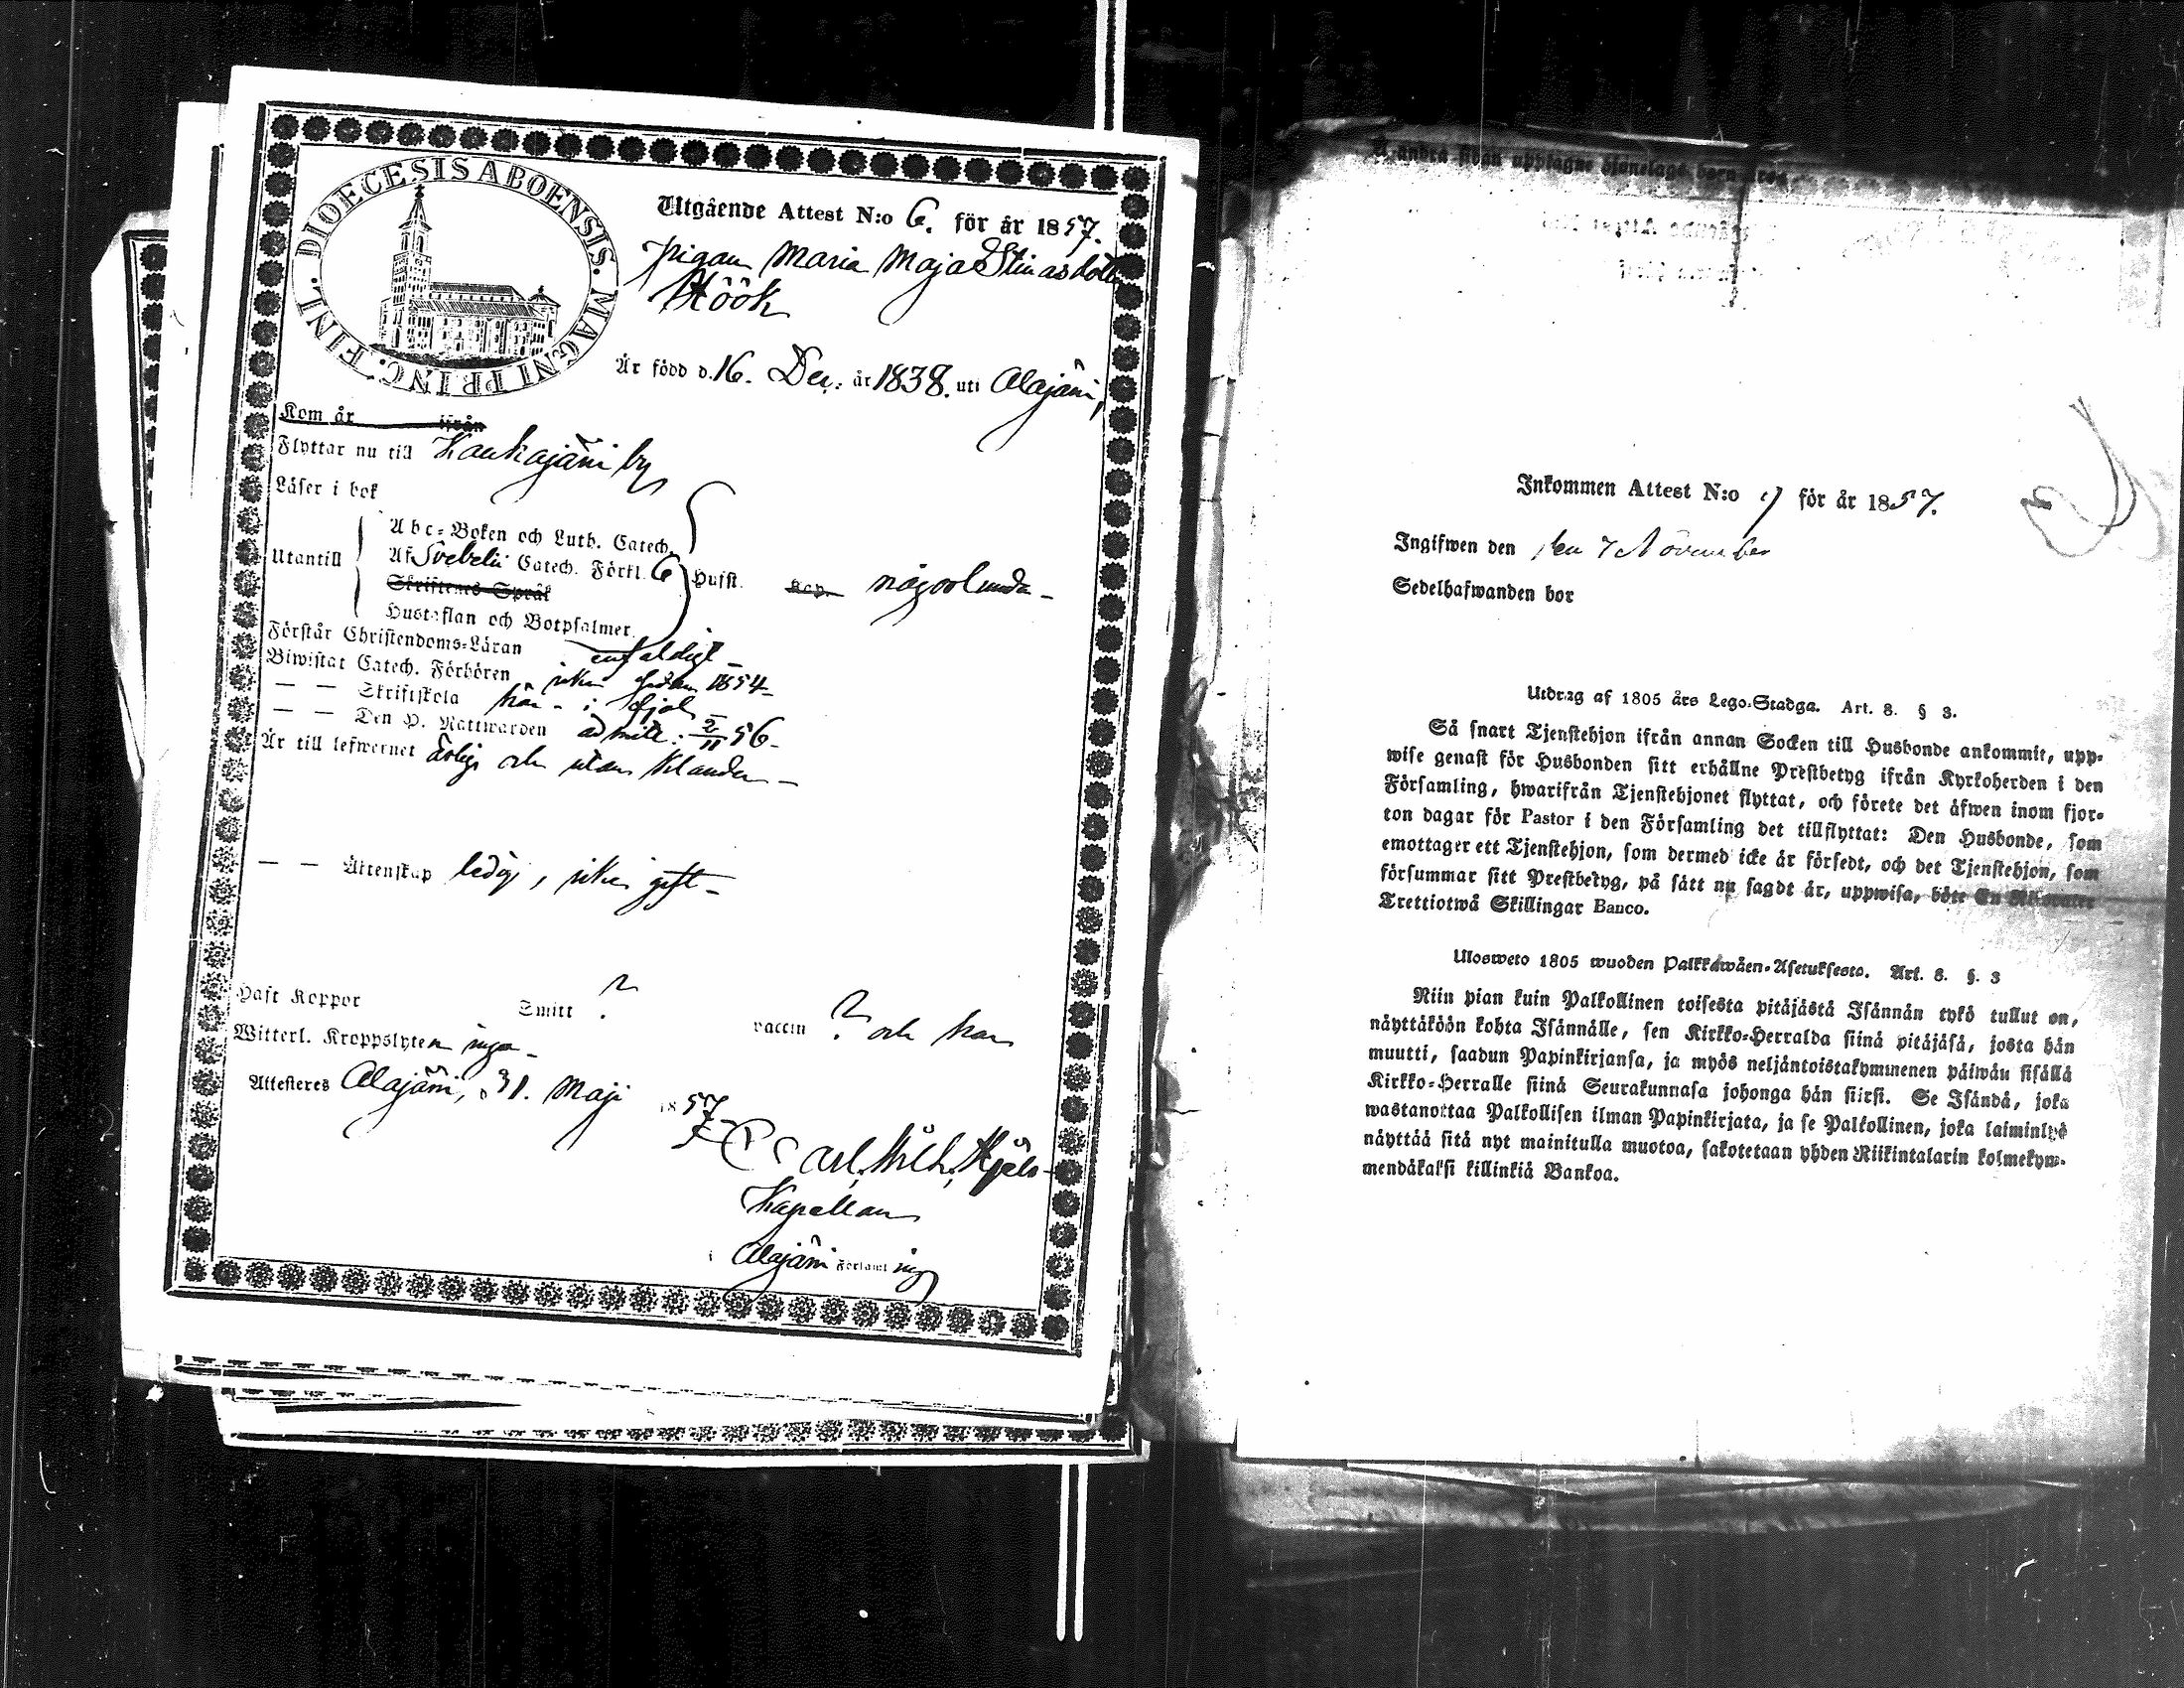 DIOECESIS ABOENSIS. MAGNI PRINC. FINL.
Utgående Attest N:o 6. för år 1857.
pigan Maria Maja Stinasdotter
Höök
Är född d. 16. Dec: år 1838. uti Alajärvi,
Kom år ifrån
Flyttar nu till Kaukajärvi by
Läser i bok
Utantill
Abc-Boken och Luth. Catech.
Af Svebelii Catech. Förkl. 6 Hufst. Kap. någorlunda -
Skriftenes Språk
Hustaflan och Botpsalmer.
Förstår Christendoms-Läran enfaldigt -
Biwistat Catech. Förhören sedan 1854-
— — Skriftskola här - i fjol
— — Den H. Nattwarden admitt: 2/11 56-
Är till lefwernet ärlig och utan klander -
— — Äktenskap ledig, gift -
Haft Koppor Smitt ? vaccin ? och har
Witterl. Kroppslyten inga -
Attesteres Alajärvi, d 31. Maji 1857
Carl Wilh.
Kapellan
i Alajärvi Församling
Inkommen Attest N:o 7 för år 1857.
Ingifwen den den 7 November
Sedelhafwanden bor
Utdrag af 1805 års Lego-Stadga. Art. 8. § 3.
Så snart Tjenstehjon ifrån annan Socken till Husbonde ankommit, upp-
wise genast för Husbonden sitt erhållne Prestbetyg ifrån Kyrkoherden i den
Församling, hwarifrån Tjenstehjonet flyttat, och förete det äfwen inom fjor-
ton dagar för Pastor i den Församling det tillflyttat: Den Husbonde, som
emottager ett Tjenstehjon, som dermed icke är försedt, och det Tjenstehjon, som
försummar sitt Prestbetyg, på sätt nu sagdt är, uppwisa, böte En
Trettiotwå Skillingar Banco.
Ulosweto 1805 wuoden Palkkawäen-Asetuksesta. Art. 8. §. 3
Niin pian kuin Palkollinen toisesta pitäjästä Isännän tykö tullut on,
näyttäköön kohta Isännälle, sen Kirkko-Herralda siinä pitäjäsä, josta hän
muutti, saadun Papinkirjansa, ja myös neljäntoistakymmenen päiwän sisällä
Kirkko-Herralle siinä Seurakunnasa johonga hän siirsi. Se Isändä, joka
wastanottaa Palkollisen ilman Papinkirjata, ja se Palkollinen, joka laiminlyö
näyttää sitä nyt mainitulla muotoa, sakotetaan yhden Riikintalarin kolmekym-
mendäkaksi killinkiä Bankoa.